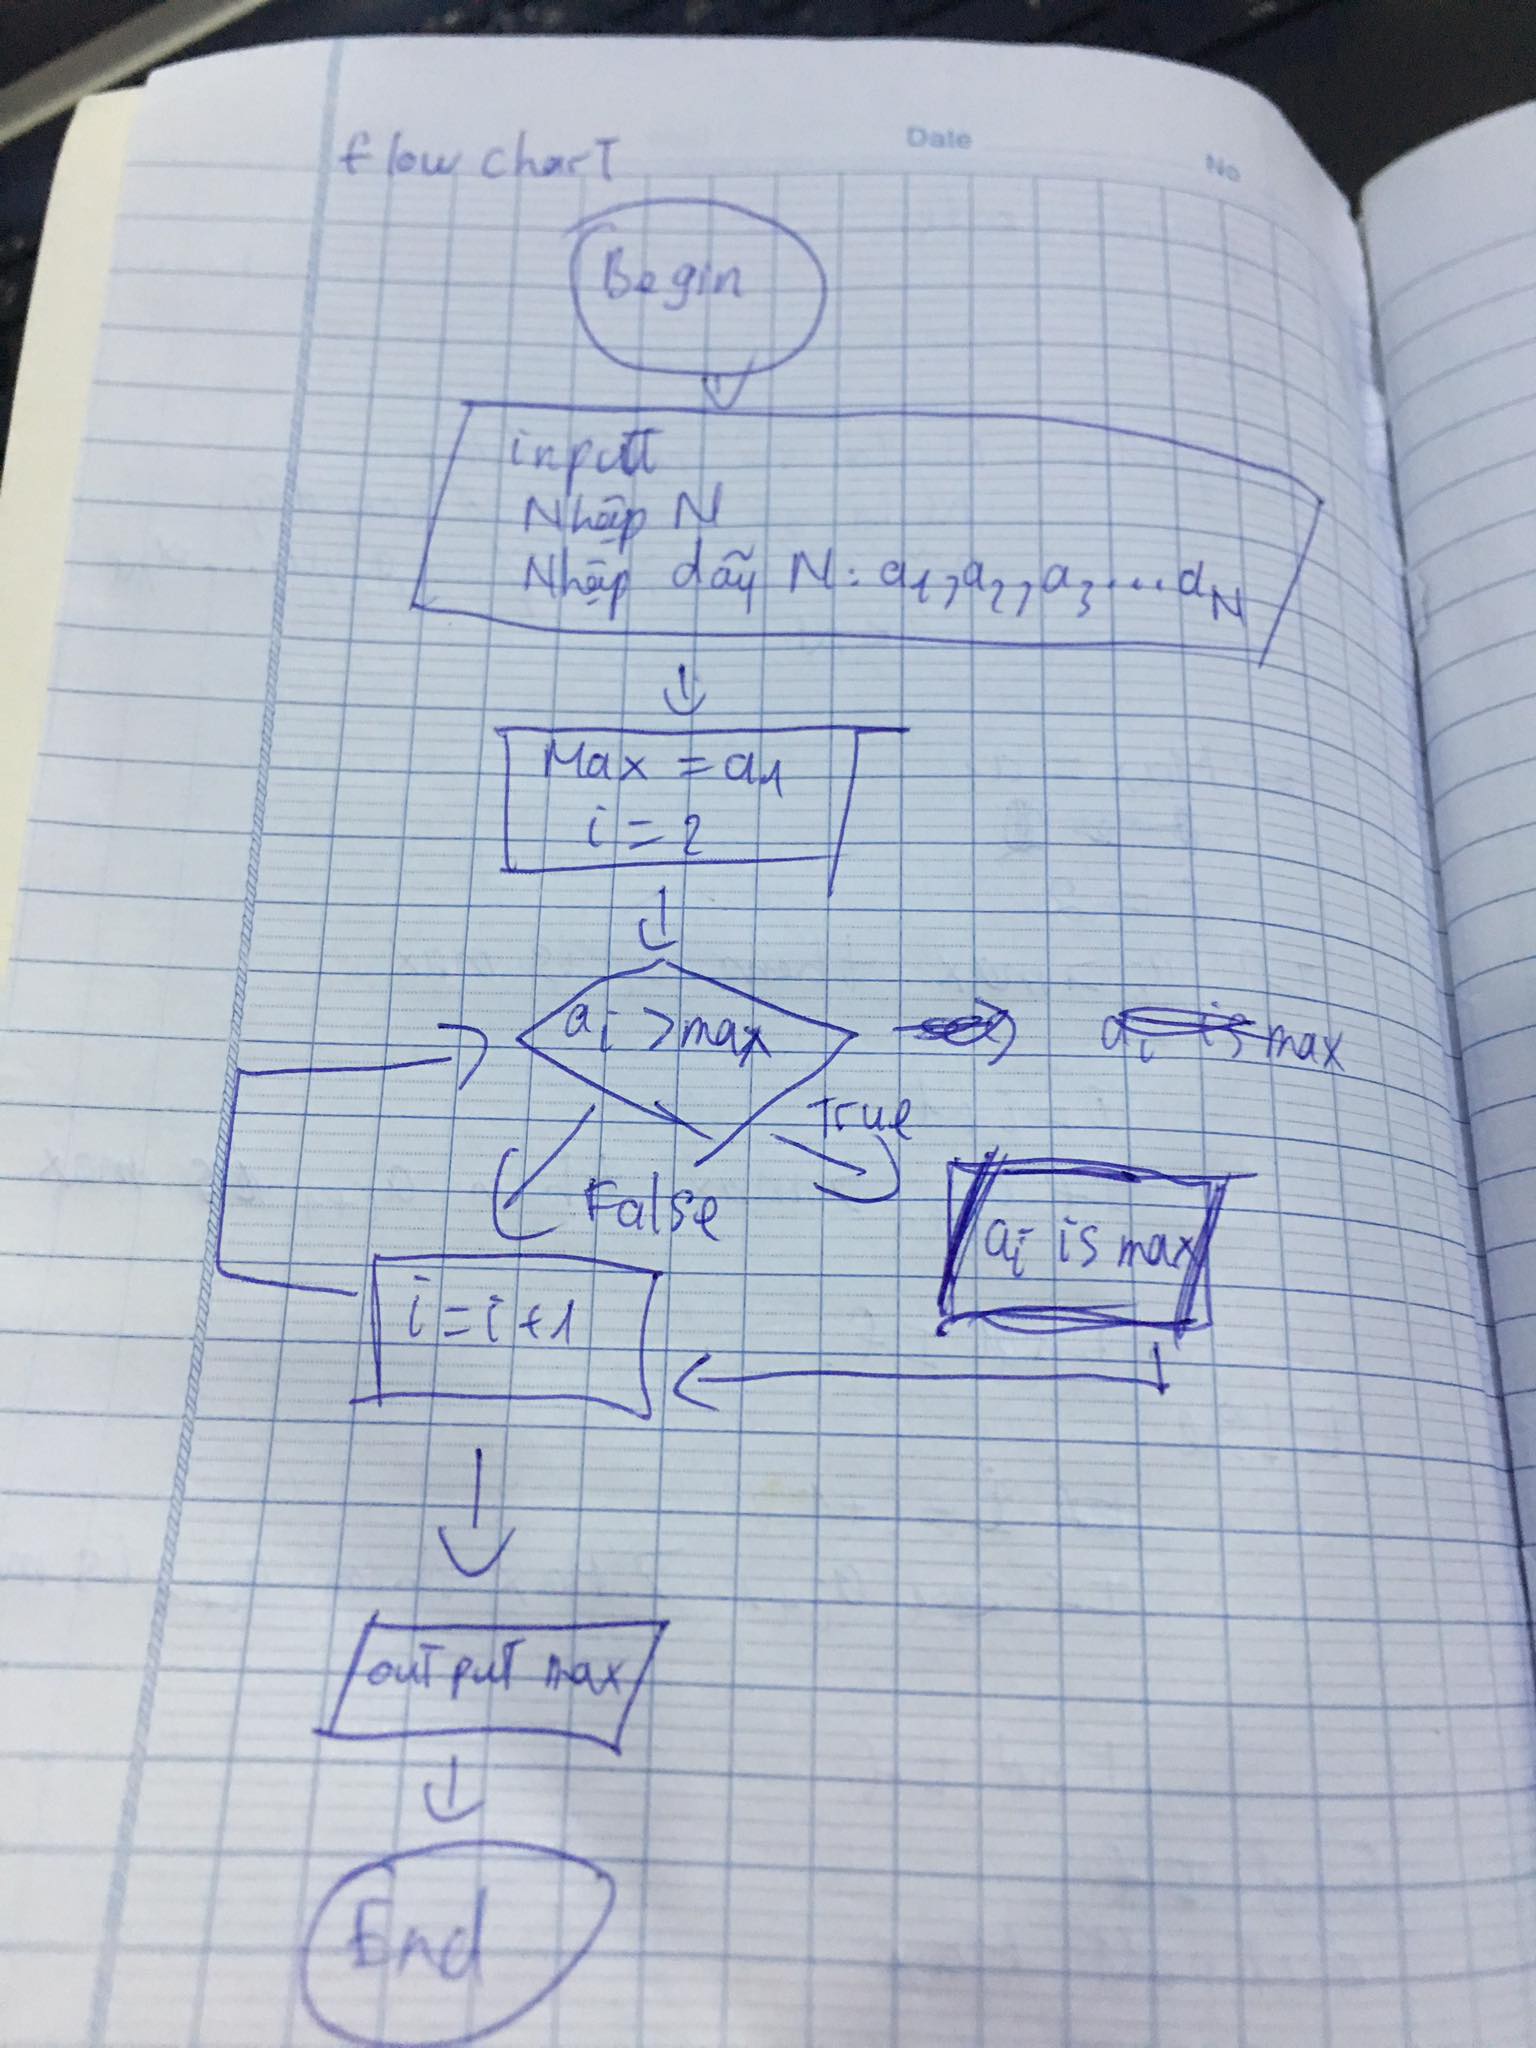 flow chart
Date
No
Begin
input
Nhập N
Nhập dãy N: a1, a2, a3 ... aN
Max = a1
i = 2
ai > max
ai is max
True
False
ai is max
i = i + 1
output max
End